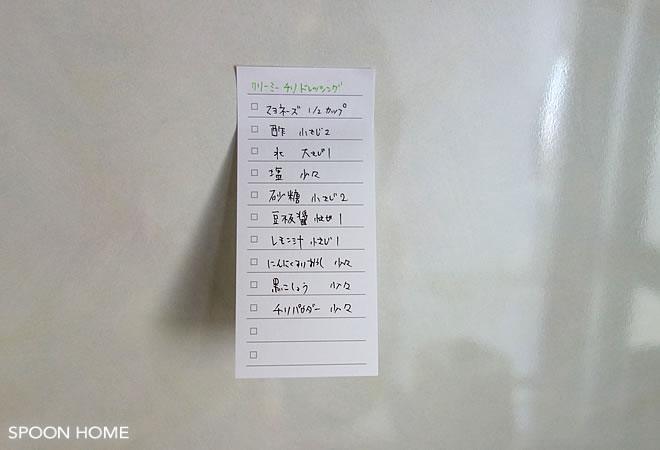 クリーミーチリドレッシング
マヨネーズ 1/2カップ
酢 小さじ2
水 大さじ1
塩 少々
砂糖 小さじ2
豆板醤 小さじ1
レモン汁 小さじ1
にんにくすりおろし 少々
黒こしょう 少々
チリパウダー 少々
SPOON HOME